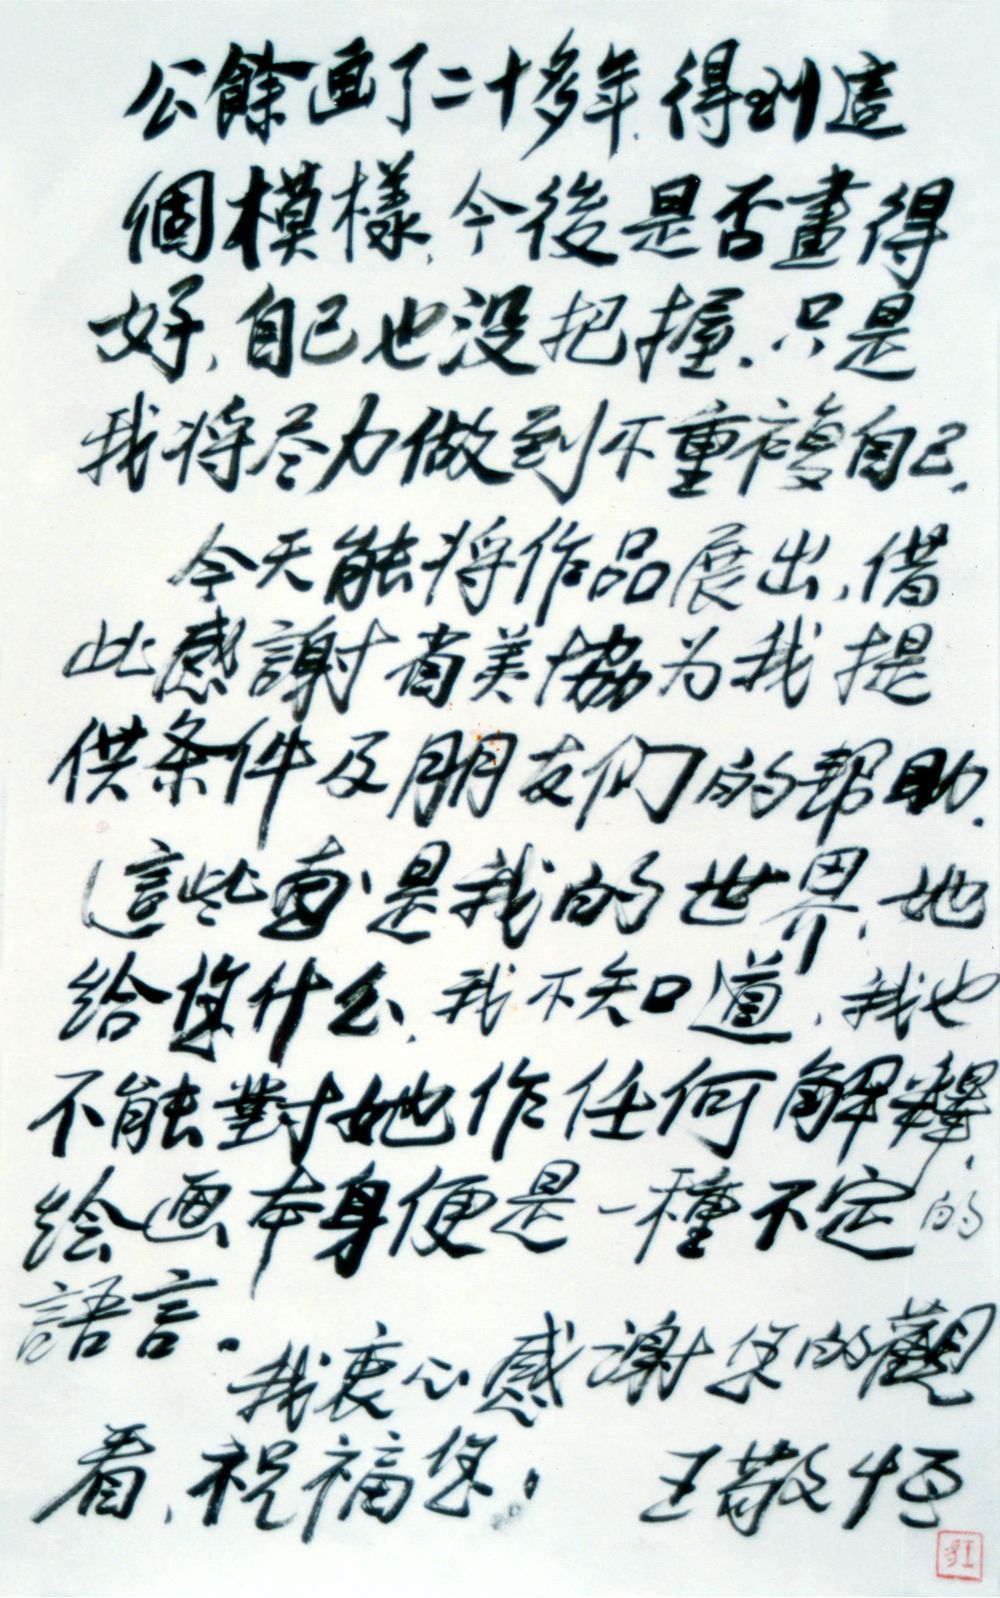 公餘画了二十多年,得到這
個模樣,今後是否畫得
好,自己也没把握.只是
我将尽力做到不重複自己.
今天能将作品展出,借
此感謝省美協为我提
供条件及朋友们的帮助.
這些画是我的世界,她
给您什么,我不知道,我也
不能對她作任何解釋,
绘画本身便是一種不定的
語言.
我衷心感謝您的觀
看,祝福您!
王敬恒